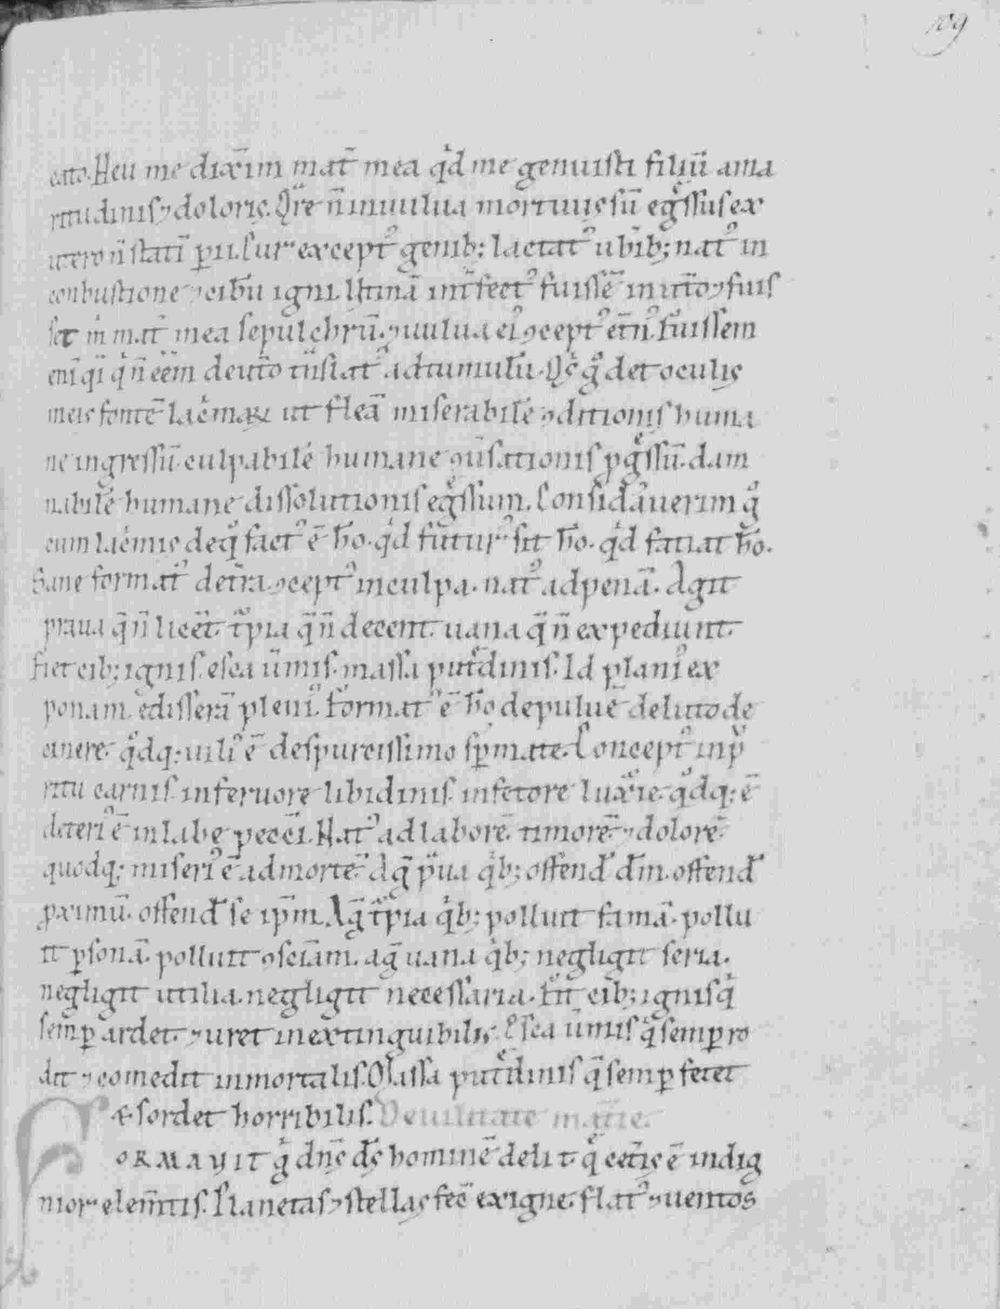 109
cato. Heu me dixim̄ mat̄ mea qͥd me genuisti filiū ama
ritudinis ⁊ doloris. Qr̄e n̄ in uulua mortuus sū eg̊ssus ex
utero n̄ statī ꝑii. Cur exceptꝰ genib; lactatꝰ ub̄ib; natꝰ in
conbustione ⁊ cibū igni. Utinā int̄fectꝰ fuissē in ut̄o ⁊ fuis
set m̄ mat̄ mea sepulchrū. ⁊ uulua eiꝰ ꝯceptꝰ et̄nꝰ. fuissem
eni̅ qͣi qͥ n̄ eēm de ut̄o tn̄slatꝰ ad tumulū. Qͥs gͦ det oculis
meis fontē lac̄maꝝ ut fleā miserabilē ꝯditionis huma
ne ingressū. culpabilē humane ꝯuersationis ꝓgͤssū. dam
nabilē humane dissolutionis egͤssum. Considauerim gͦ
cum lac̄mis de qͦ factꝰ ē hō. qͥd futurꝰ sit hō. qͥd faciat hō.
Sane formatꝰ de tr̄a. ꝯceptꝰ in culpa. natꝰ ad penā. Agit
praua q̄ n̄ licēt. t̾pia q̄ n̄ decent. uana q̄ n̄ expediunt.
Fiet cib; ignis. esca ūmis. massa put̄dinis. Id planiꝰ ex
ponam. edisserā pleniꝰ. formatꝰ ē hō de puluē de luto de
cinere. qͦdq; uiliꝰ ē de spurcissimo sꝑmate. Conceptꝰ in pͮ
ritu carnis. in feruore libidinis. in fetore luxͥie. qͦdq; ē
deteriꝰ ē in labe peccͥ. Natꝰ ad laborē. timorē. ⁊ dolorē.
quodq; miseriꝰ ē ad mortē. Ag̅ pͣua qͥb; offend̄ d̄m. offend̄
ꝓximū. offend̄ se ip̄m. Ag̅ t̾pia qͥb; polluit famā. pollu
it ꝑsonā. polluit ꝯsciam̄. ag̅ uana qͥb; negligit seria.
negligit utilia. negligit necessaria. Fit̄ cib; ignis qͥ
semꝑ ardet. ⁊ uret inextinguibilis. Esca ūmis qͥ semꝑ ro
dit ⁊ comedit inmortalis. Massa put̄dinis q̄ semꝑ fetet
& sordet horribilis. De uilitate mat̄ie.
FORMAVIT gͥ dn̄s ds̄ hominē de lit. qͥ cet̄is ē indig
nior elem̄tis. Planetas ⁊ stellas fec̄ ex igne. flatꝰ ⁊ uentos